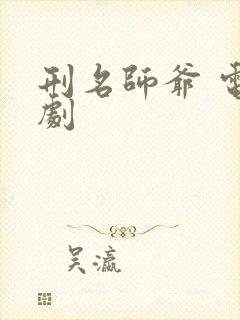 刑名師爺
劇
吳瀛